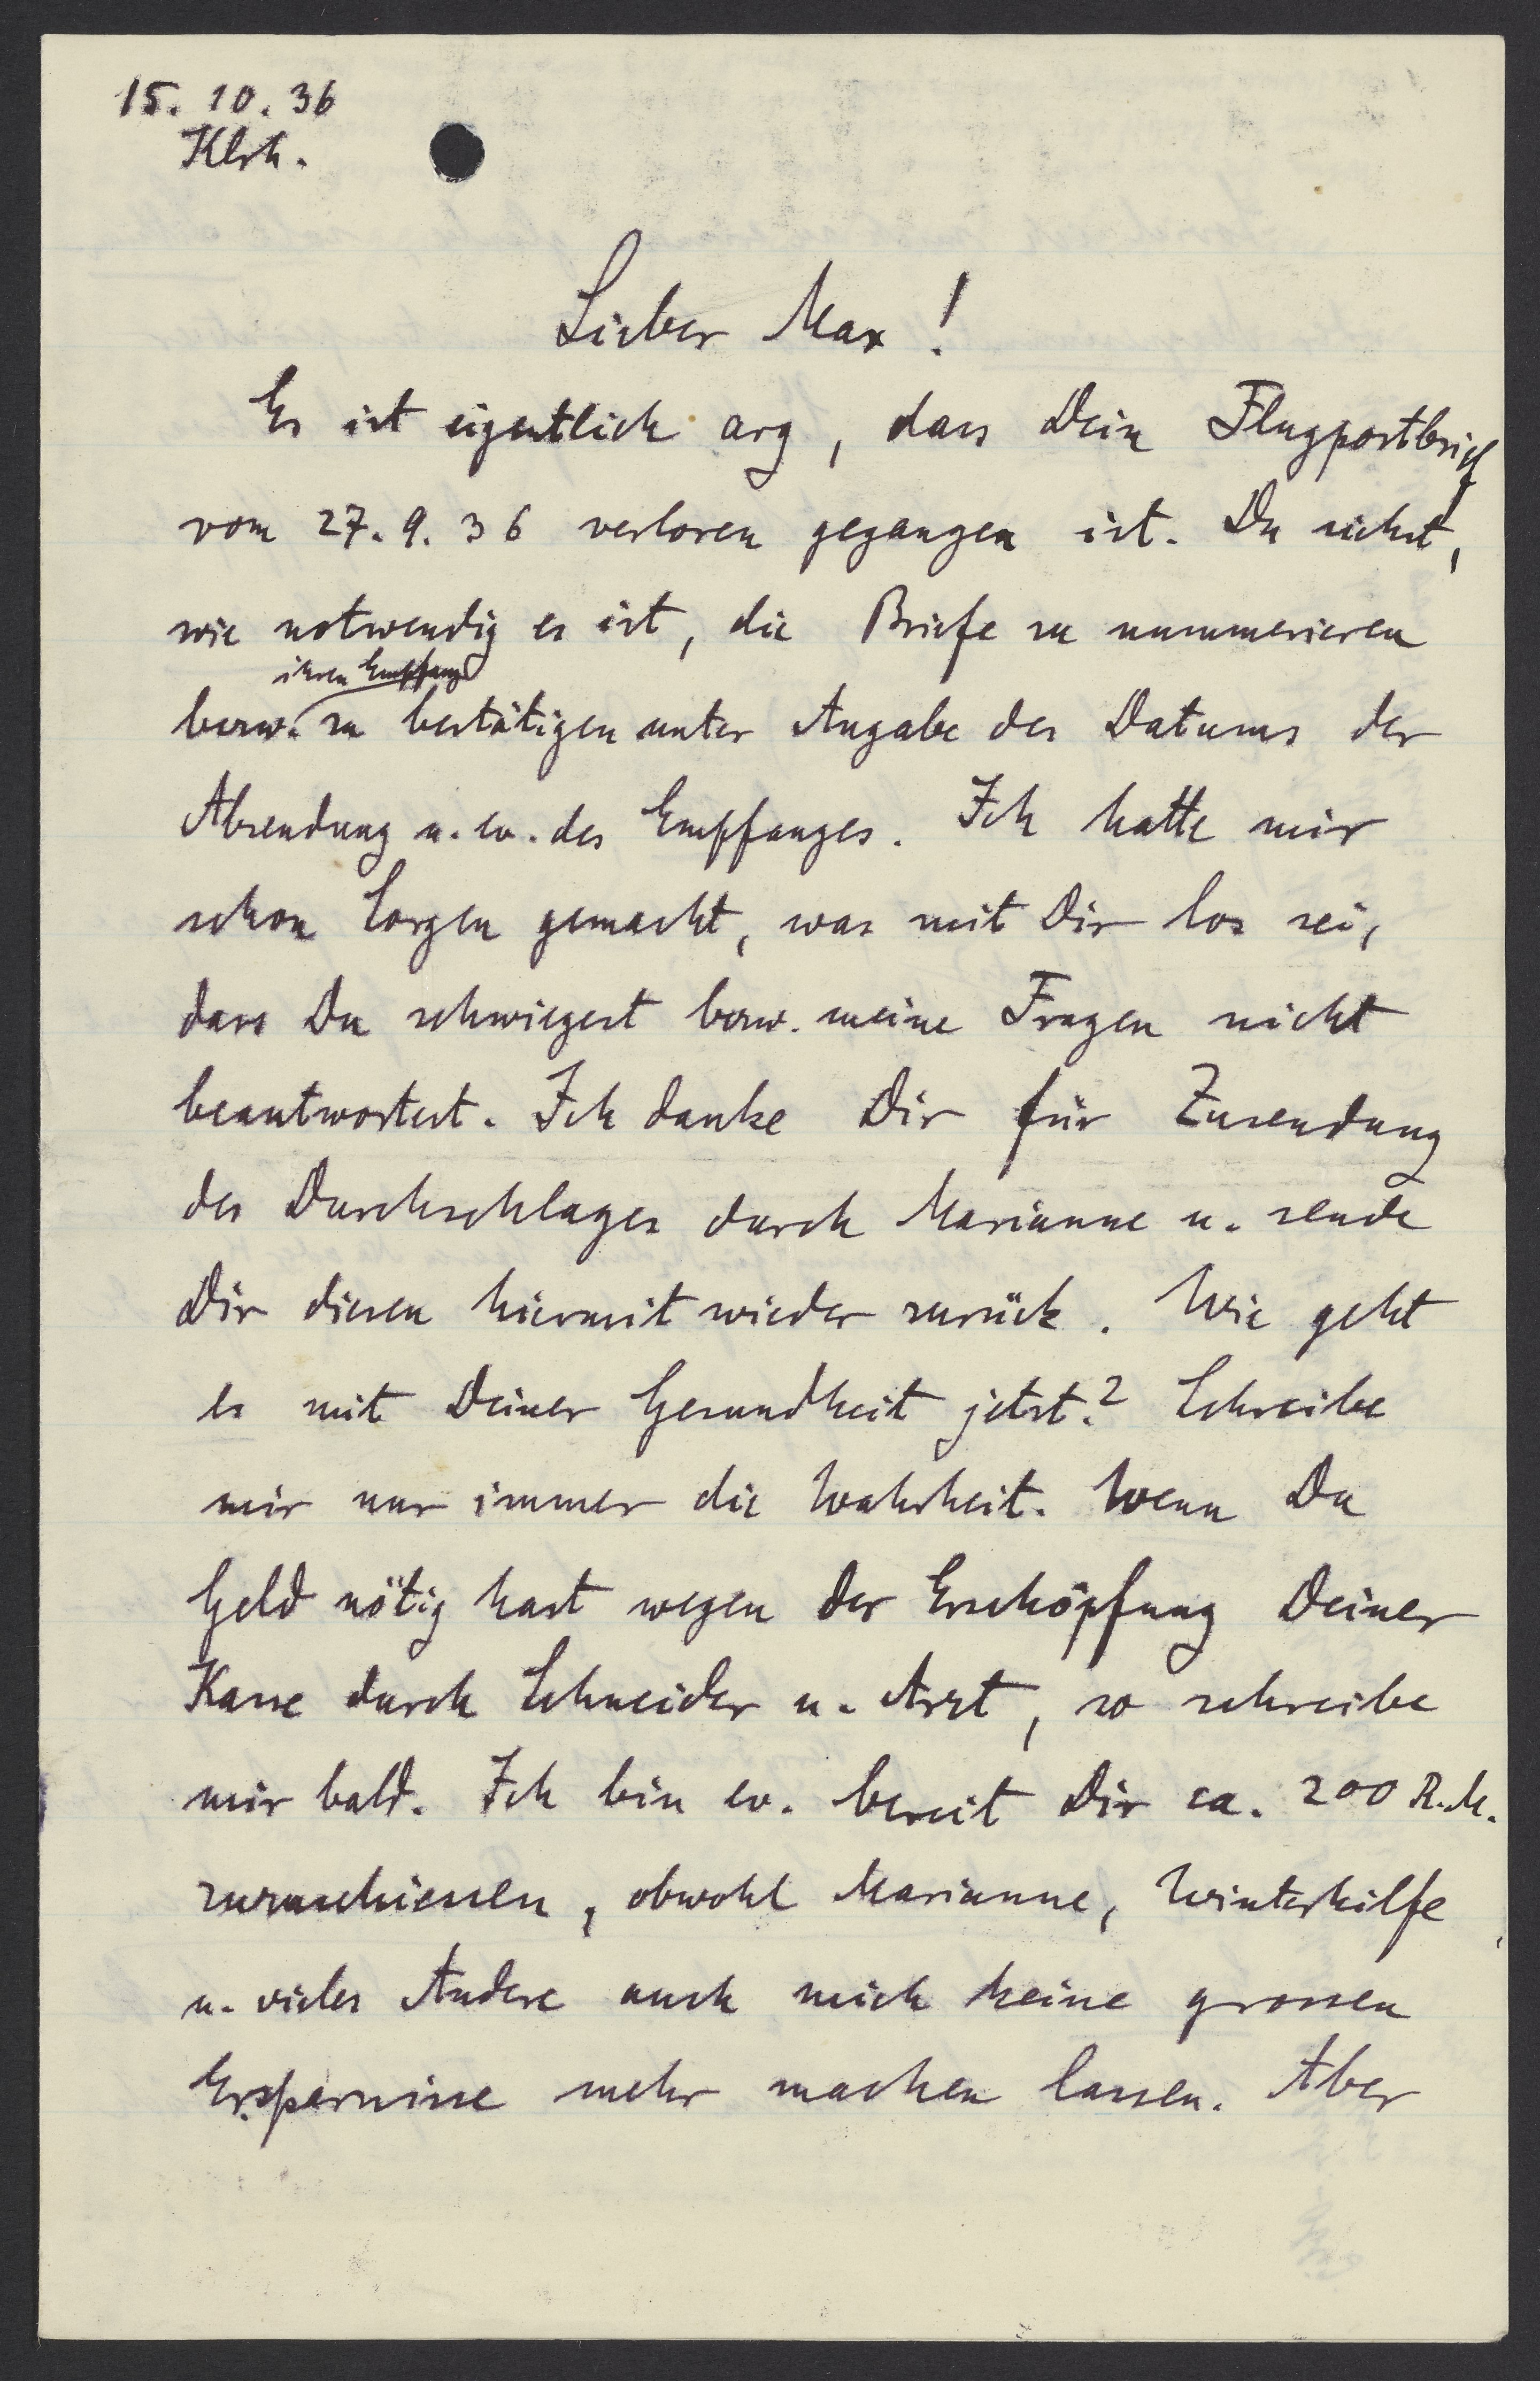 15. 10. 36
Klrh.
Lieber Max!
Es ist eigentlich arg, dass Dein Flugpostbrief
vom 27. 9. 36 verloren gegangen ist. Du siehst,
wie notwendig es ist, die Briefe zu nummerieren
ihren Empfang
bezw. zu bestätigen unter Angabe des Datums der
Absendung u. ev. des Empfanges. Ich hatte mir
schon Sorgen gemacht, was mit Dir los sei,
dass Du schwiegest bezw. meine Fragen nicht
beantwortest. Ich danke Dir für Zusendung
des Durchschlages durch Marianne u. sende
Dir diesen hiermit wieder zurück. Wie geht
es mit Deiner Gesundheit jetzt? Schreibe
mir nur immer die Wahrheit. Wenn Du
Geld nötig hast wegen der Erschöpfung Deiner
Kasse durch Schneider u. Arzt, so schreibe
mir bald. Ich bin ev. bereit Dir ca. 200 R.M.
zuzuschiessen, obwohl Marianne, Winterhilfe
u. vieles Andere auch mich keine grossen
Ersparnisse mehr machen lassen. Aber